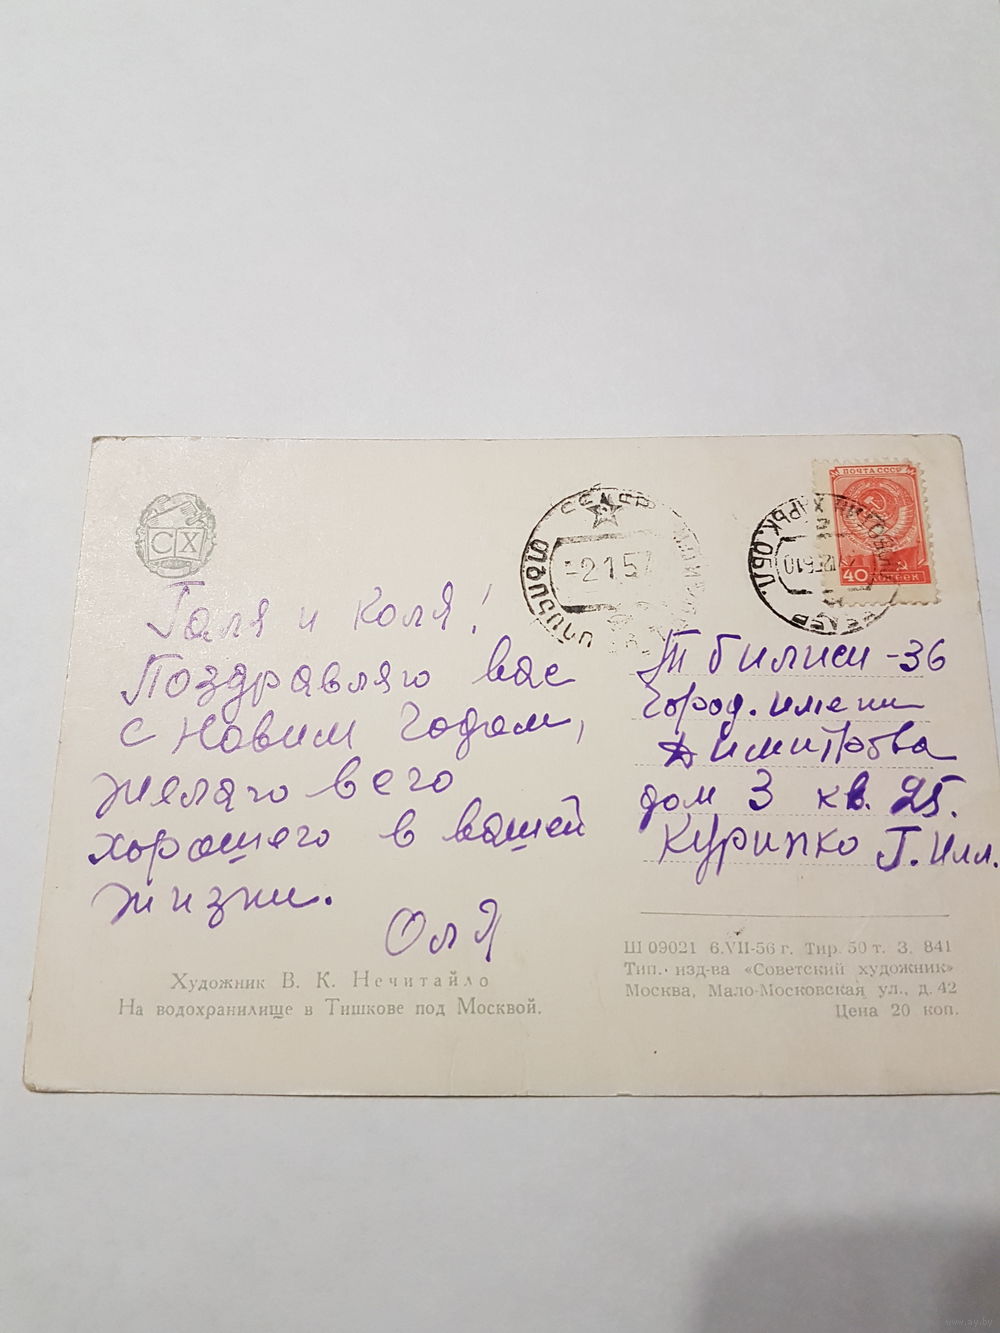 СХ
Галя и Коля!
Поздравляю вас
с Новим Годом,
желаю всего
хорошего в вашей
жизни.
Оля
Художник В. К. Нечитайло
На водохранилище в Тишкове под Москвой.
СССР
-2 1 57
ПОЧТА СССР
40
ОБЛ.
СССР
Тбилиси-36
Город. имени
Димитрова
дом 3 кв. 25.
Курипко Г. Илл.
Ш 09021 6.VII-56 г. Тир. 50 т. З. 841
Тип. изд-ва «Советский художник»
Москва, Мало-Московская ул., д. 42
Цена 20 коп.
www.ay.by